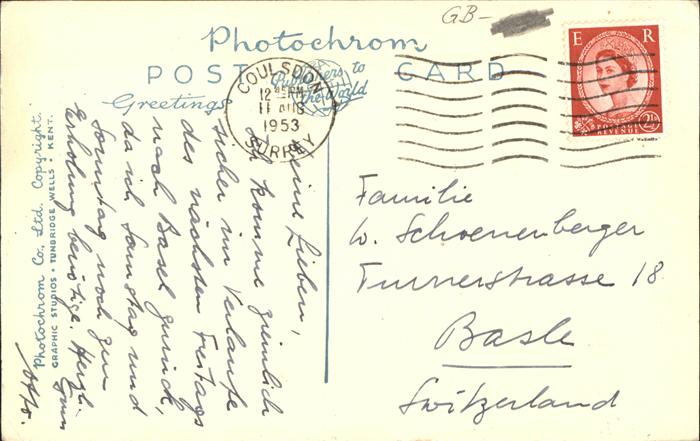 GB-
Photochrom
POST CARD
Publishers to
the World
Greetings
COULSDON
12 45 PM
11 AUG
1953
SURREY
E R
POSTAGE
REVENUE
2½D
Meine Lieben,
Ich komme ziemlich
sicher im Verlaufe
des nächsten Freitags
nach Basel zurück,
da ich Samstag und
Sonntag noch zur
Erholung benötige. Herzl.
Otto.
Familie
W. Schoenenberger
Turnerstrasse 18
Basle
Switzerland
Photochrom Co., Ltd. Copyright.
GRAPHIC STUDIOS • TUNBRIDGE WELLS • KENT.